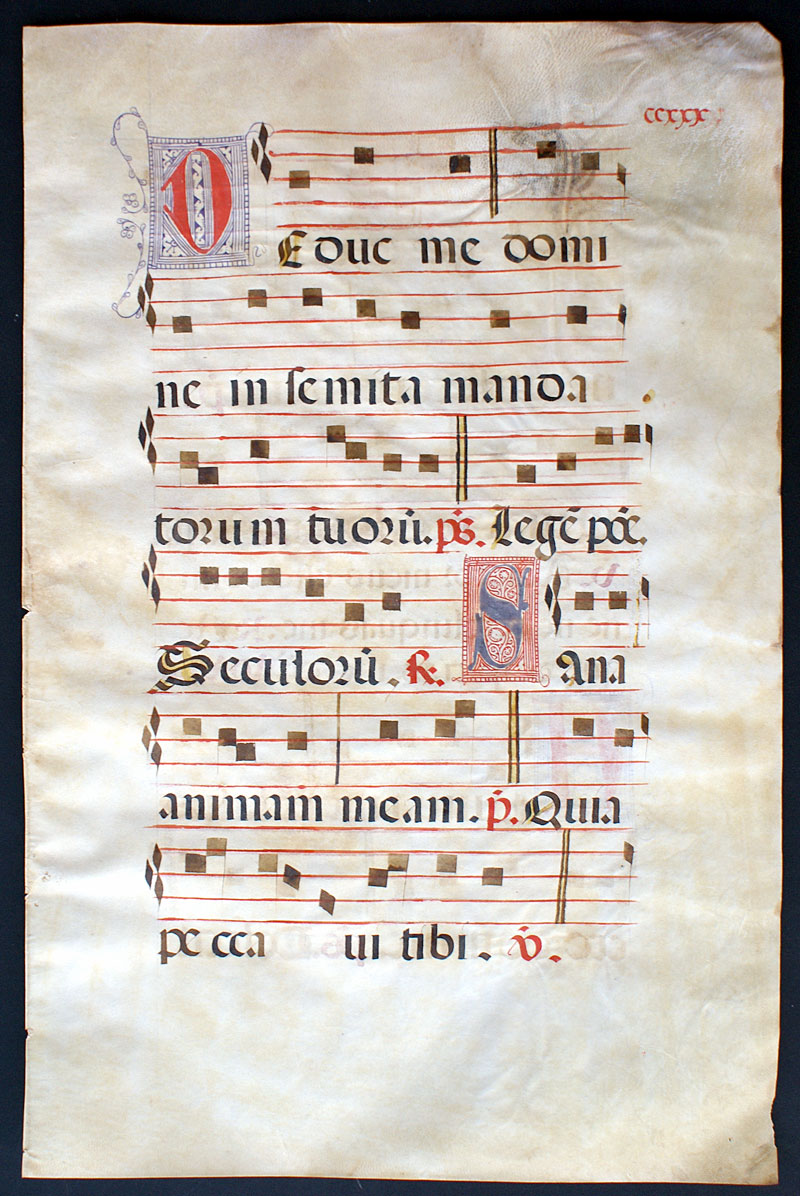 ccxxx
DEduc me domi
ne in semita manda
torum tuorū. ps. Legē pōe.
Seculorū. R. Sana
animam meam. p. Quia
pecca ui tibi. v.